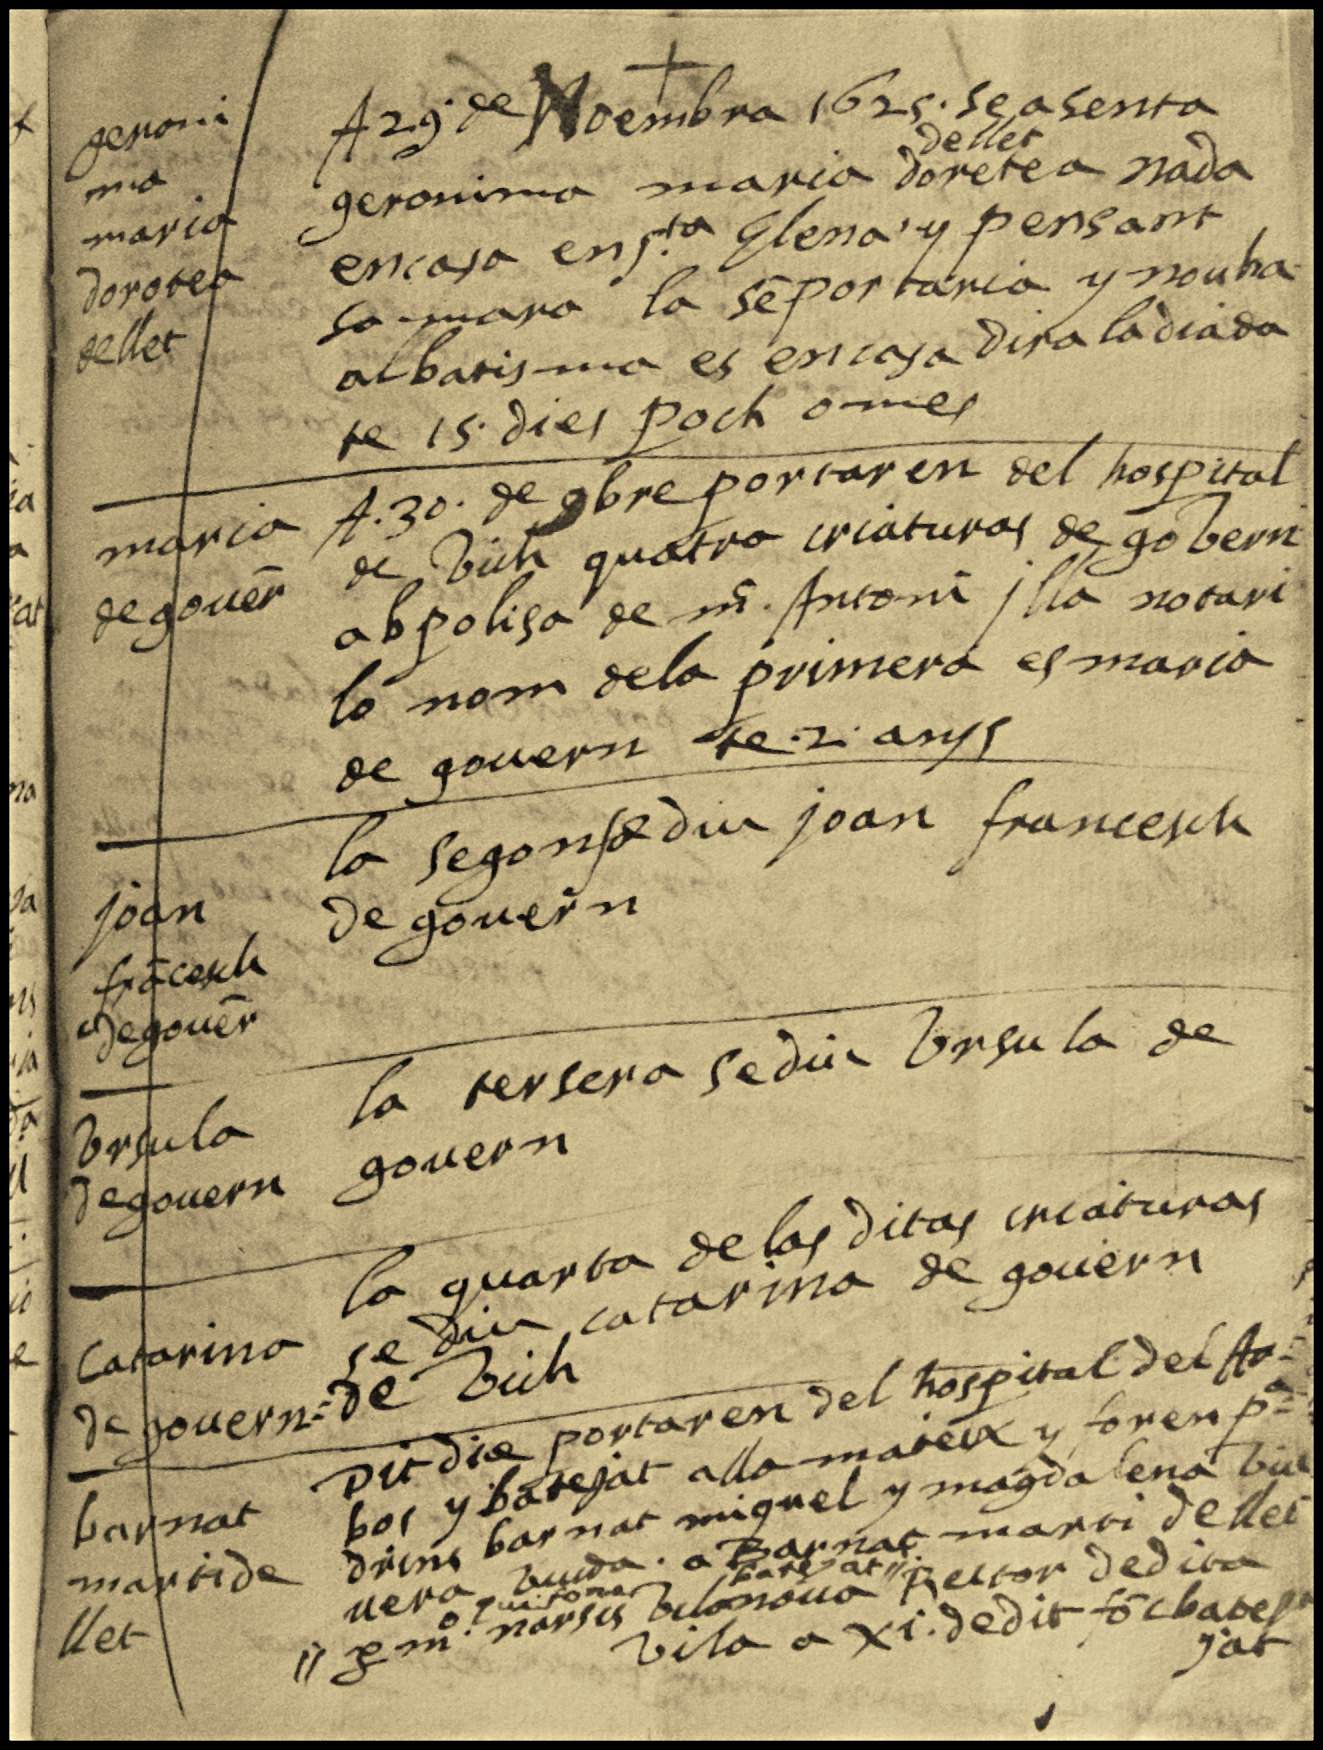 +
geroni
ma
maria
dorotea
dellet
A 29 de Noembra 1625. se asenta
dellet
geronima maria doretea nada
en casa en S.ta Elena y pensant
sa mara la sēportaria y nou ha
al batisma es en casa dira la diada
te 15 dies poch o mes
maria
de gouēr
A. 30. de 9bre portaren del hospital
de Vich quatra criaturas de govern
ab polisa de m. Antoni jlla notari
lo nom de la primera es maria
de gouern te .2. anys
joan
frācesch
de gouēr
la segonse diu joan francesch
de gouern
Vrsula
de gouern
la tersera se diu Vrsula de
gouern
Catarina
de gouern
la quarta de las ditas criaturas
se diu catarina de gouern
de Vich
barnat
marti de
llet
Dit die portaren del hospital del Ar=
bos y batejat alla mateix y foren pa=
drins barnat miquel y magdalena Viu
uera viuda. a Barnat marti de llet
batejat
// p m. narsis Vilanoua Rector de dita
vila a xi. de dit fōc batej
jat